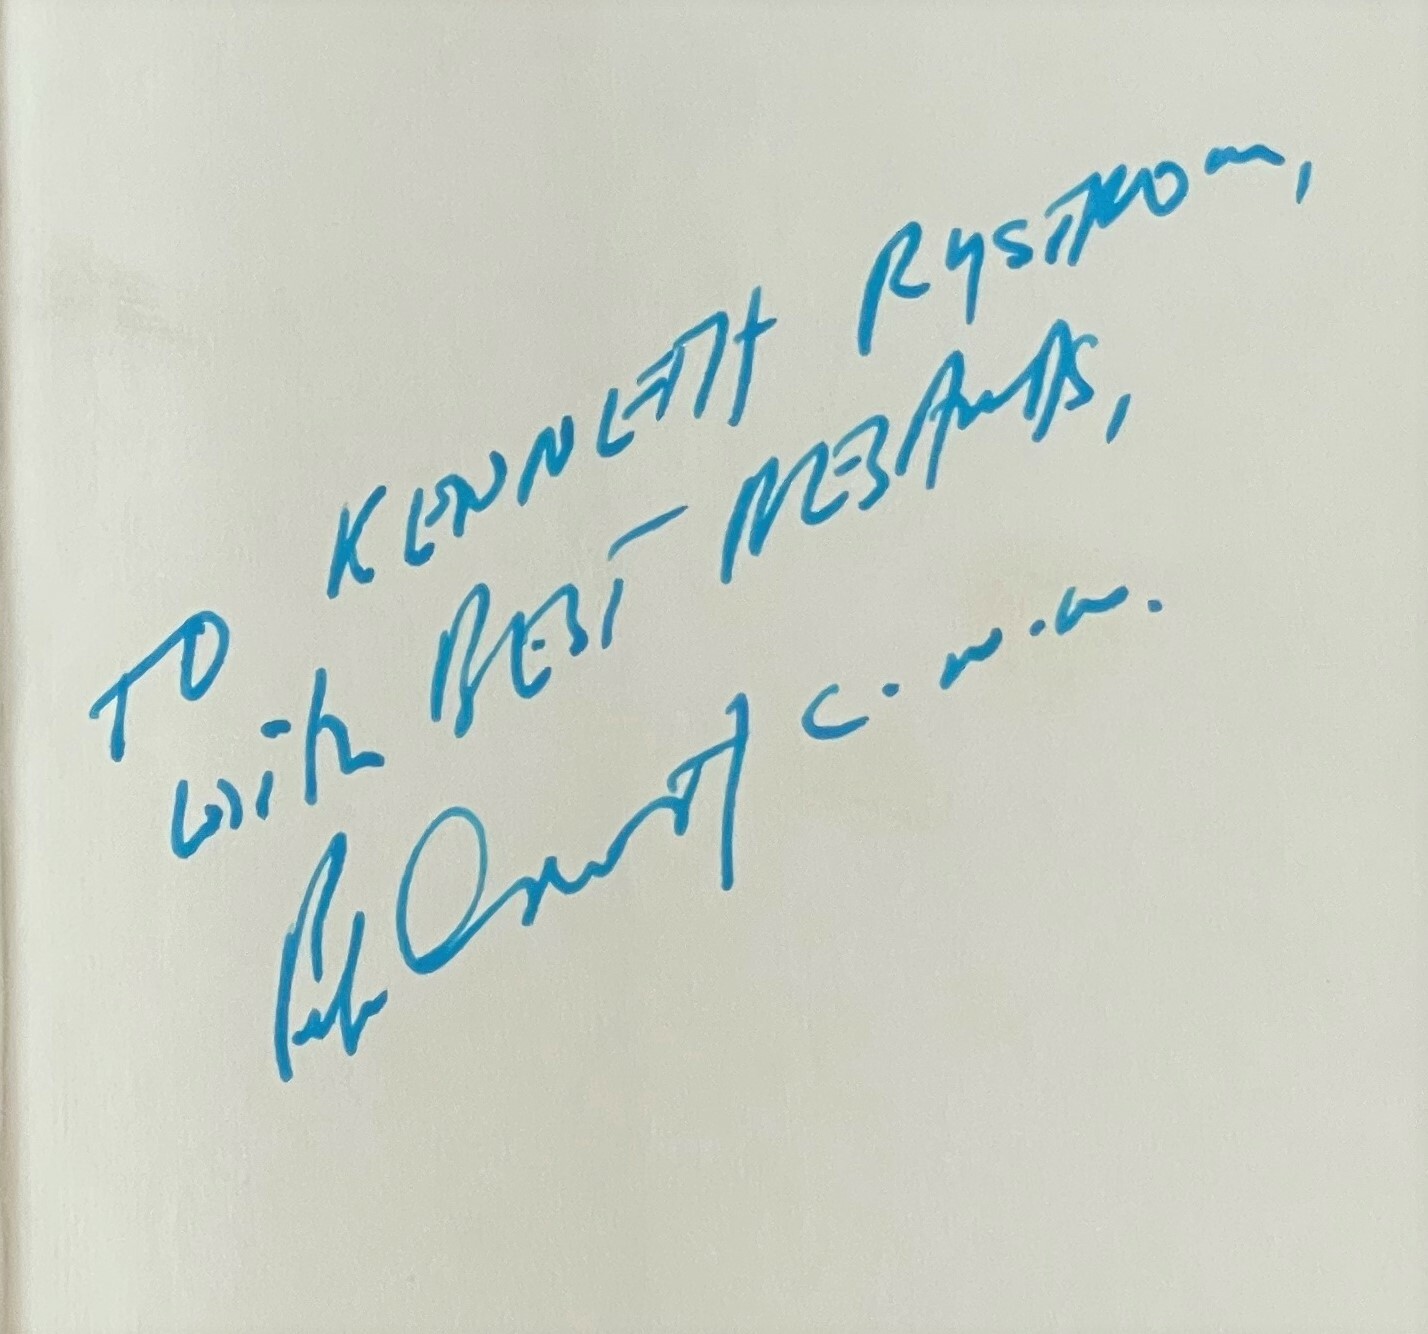 TO KENNETH RYSTROM,
with BEST REGARDS,
C.W.W.